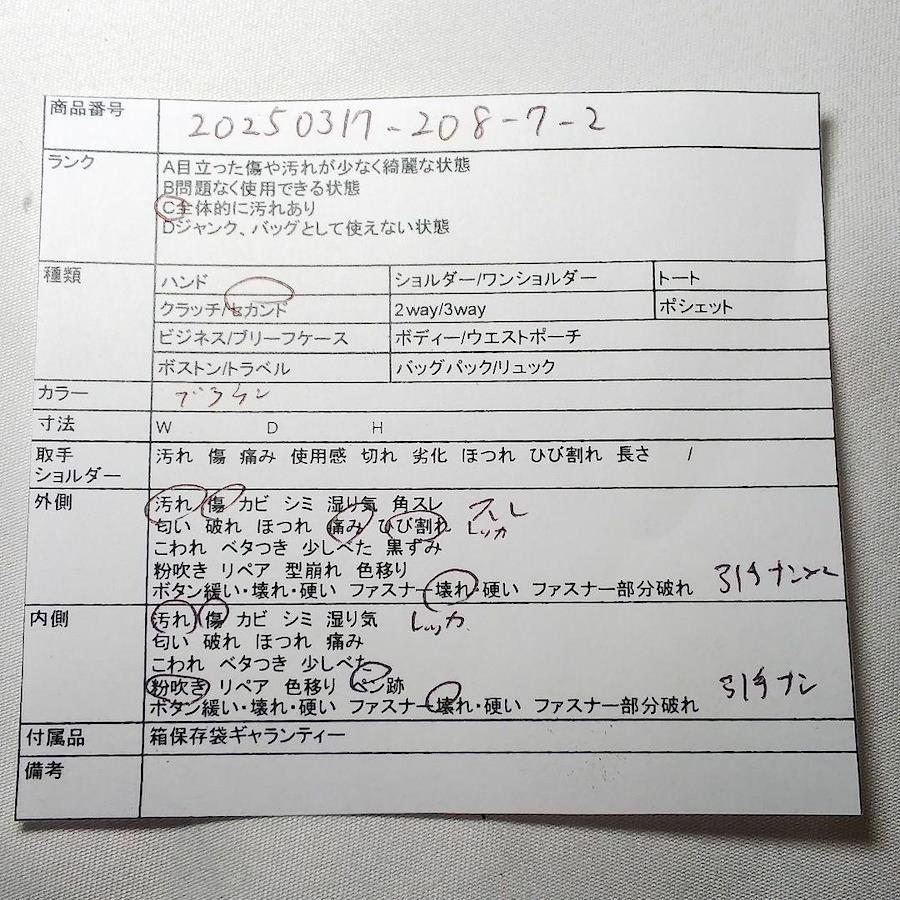 商品番号 20250317-208-7-2
ランク A目立った傷や汚れが少なく綺麗な状態
B問題なく使用できる状態
C全体的に汚れあり
Dジャンク、バッグとして使えない状態
種類 ハンド ショルダー/ワンショルダー トート
クラッチ/セカンド 2way/3way ポシェット
ビジネス/ブリーフケース ボディー/ウエストポーチ
ボストン/トラベル バッグパック/リュック
カラー ブラウン
寸法 W D H
取手 汚れ 傷 痛み 使用感 切れ 劣化 ほつれ ひび割れ 長さ /
ショルダー
外側 汚れ 傷 カビ シミ 湿り気 角スレ スレ
匂い 破れ ほつれ 痛み ひび割れ レッカ
こわれ ベタつき 少しべた 黒ずみ
粉吹き リペア 型崩れ 色移り
ボタン緩い・壊れ・硬い ファスナー壊れ・硬い ファスナー部分破れ 引手ナシ×2
内側 汚れ 傷 カビ シミ 湿り気 レッカ
匂い 破れ ほつれ 痛み
こわれ ベタつき 少しべた
粉吹き リペア 色移り ペン跡
ボタン緩い・壊れ・硬い ファスナー壊れ・硬い ファスナー部分破れ 引手ナシ
付属品 箱保存袋ギャランティー
備考